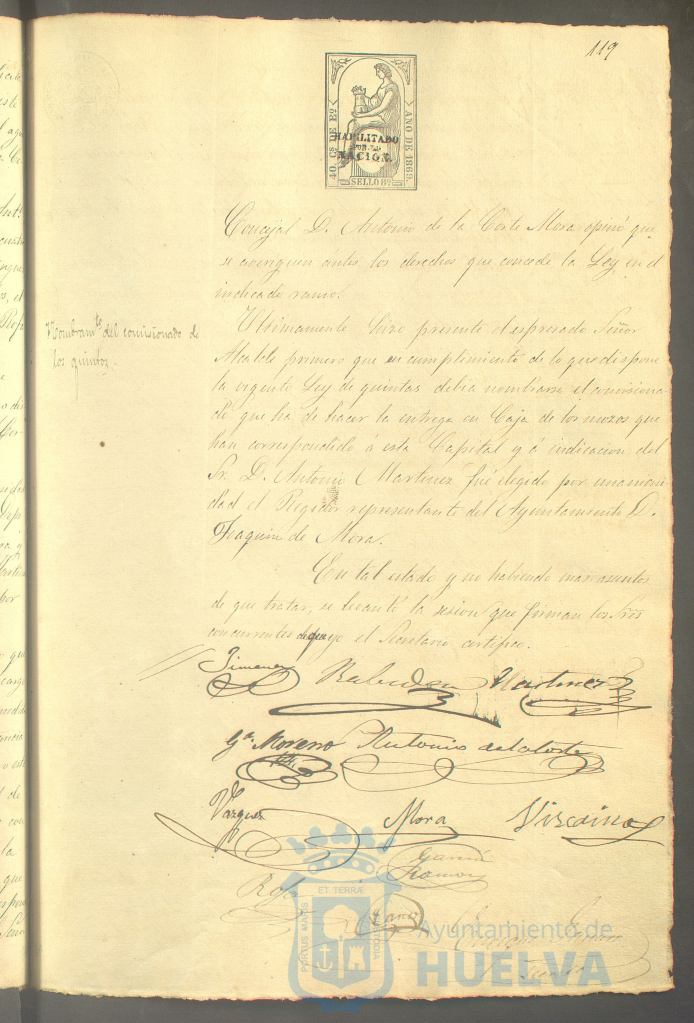 119
40 Cs DE Eo
AÑO DE 1869.
HABILITADO
POR LA
NACION.
SELLO 8º
Concejal D. Antonio de la Corte Mora opinó que
se averiguen antes los derechos que concede la Ley en el
indicado ramo.
Nombramto del comisionado de
los quintos.
Ultimamente hizo presente el espresado Señor
Alcalde primero que en cumplimiento de lo que dispone
la vigente Ley de quintas debia nombrarse el comisiona-
do que ha de hacer la entrega en Caja de los mozos que
han correspondido á esta Capital y á indicacion del
Sr. D. Antonio Martinez fué elegido por unanimi
dad el Regidor representante del Ayuntamiento D.
Joaquin de Mora.
En tal estado y no habiendo mas asuntos
de que tratar, se levantó la sesion que firman los Sres
concurrentes de que yo el Secretario certifico.
Jimenez
Martinez
Ga Moreno
Antonio de la Corte
Vazquez
Mora
Vizcaino
Garcia
Ramos
PORTUS MARIS
ET TERRÆ
CUSTODIA
Ayuntamiento de
HUELVA